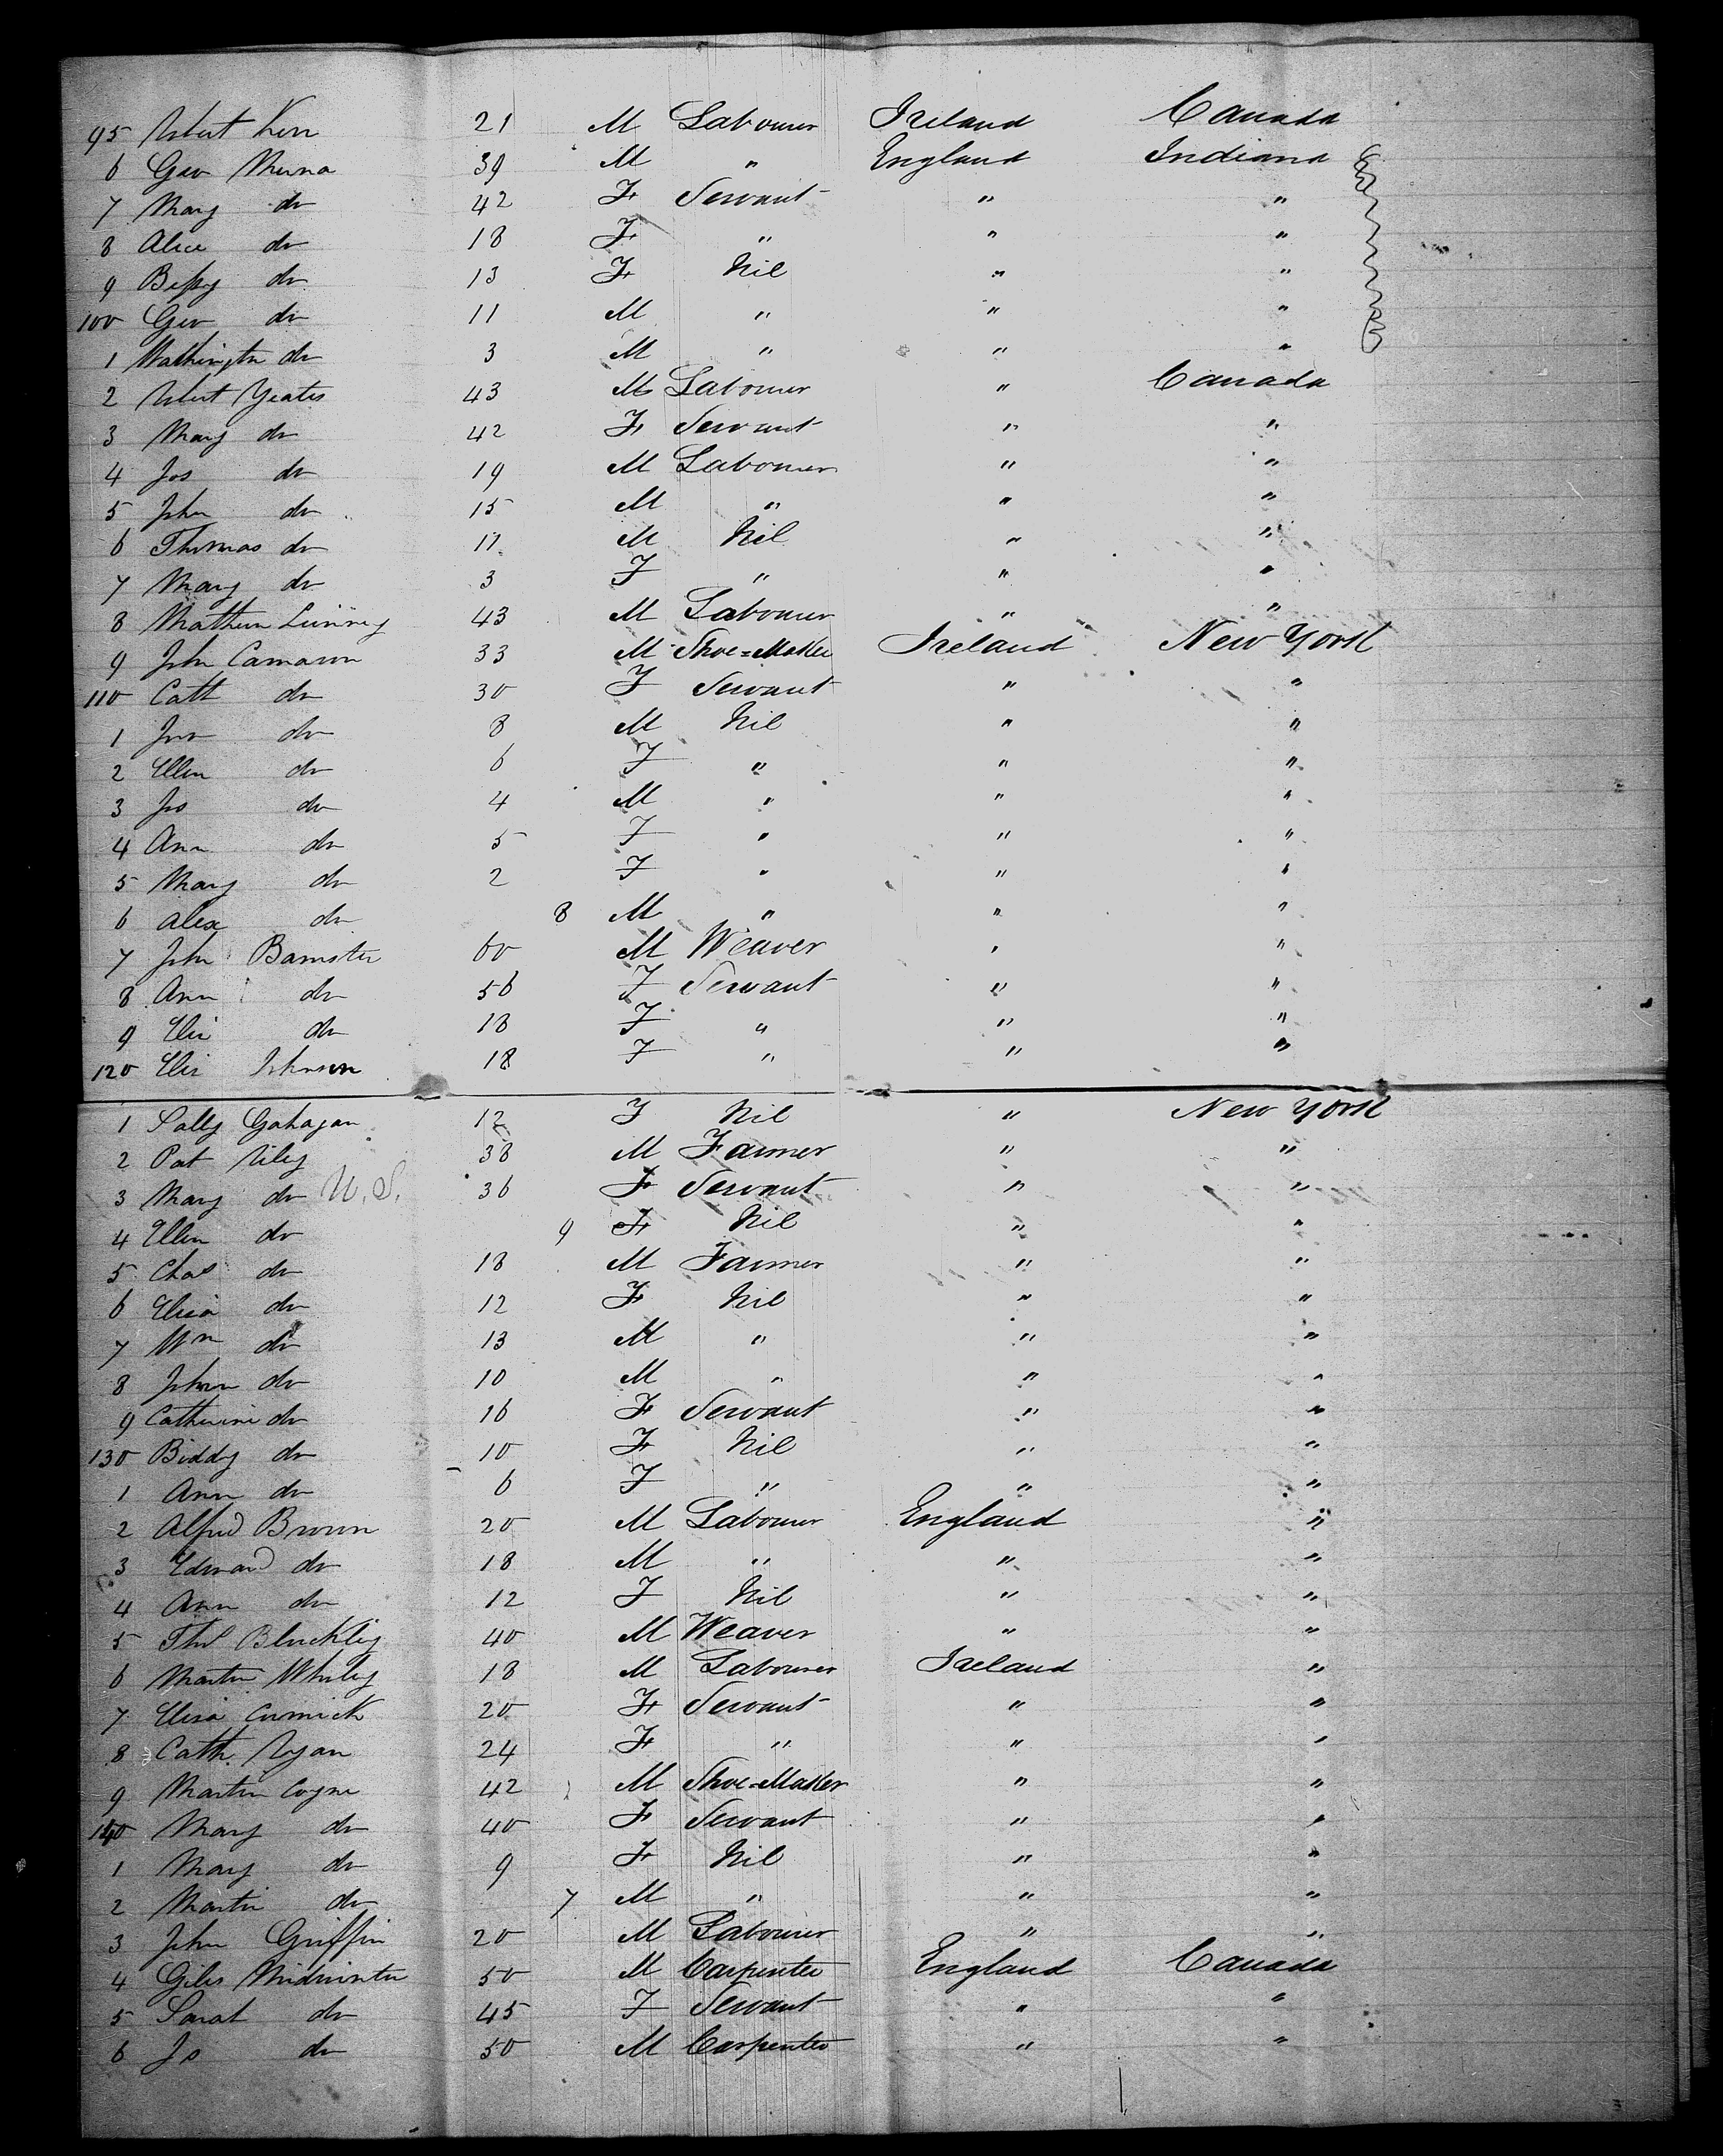 95 Robert Kerr 21 M Labourer Ireland Canada
6 Geo 39 M " England Indiana
7 Mary do 42 F Servant " "
8 Alice do 18 F " " "
9 Bessy do 13 F Nil " "
100 Geo do 11 M " " "
1 Washington do 3 M " " "
2 Robert Yeates 43 M Labourer " Canada
3 Mary do 42 F Servant " "
4 Jos do 19 M Labourer " "
5 John do 15 M " " "
6 Thomas do 11 M Nil " "
7 Mary do 3 F " " "
8 Mathew 43 M Labourer " "
9 John Camaron 33 M Shoe=Maker Ireland New York
110 Cath do 30 F Servant " "
1 Jno do 8 M Nil " "
2 Ellen do 6 F " " "
3 Jas do 4 M " " "
4 Ann do 5 F " " "
5 Mary do 2 F " " "
6 Alex do 8 M " " "
7 John Banister 60 M Weaver " "
8 Ann do 56 F Servant " "
9 Eliz do 18 F " " "
120 Eliz Johnson 18 F " " "
1 Sally Gahagan 12 F Nil " New York
2 Pat Riley 38 M Farmer " "
3 Mary do U.S. 36 F Servant " "
4 Ellen do 9 F Nil " "
5 Chas do 18 M Farmer " "
6 Eliza do 12 F Nil " "
7 Wm do 13 M " " "
8 John do 10 M " " "
9 Catherine do 16 F Servant " "
130 Biddy do 10 F Nil " "
1 Ann do 6 F " " "
2 Alfred Brown 20 M Labourer England "
3 Edward do 18 M " " "
4 Ann do 12 F Nil " "
5 Thos Bluckley 40 M Weaver " "
6 Martin Whiley 18 M Labourer Ireland "
7 Eliza Cormick 20 F Servant " "
8 Cath Ryan 24 F " " "
9 Martin Coyne 42 M Shoe=Maker " "
140 Mary do 40 F Servant " "
1 Mary do 9 F Nil " "
2 Martin do 7 M " " "
3 John Griffin 20 M Labourer " "
4 Giles Midwinter 50 M Carpenter England Canada
5 Sarah do 45 F Servant " "
6 Js do 50 M Carpenter " "